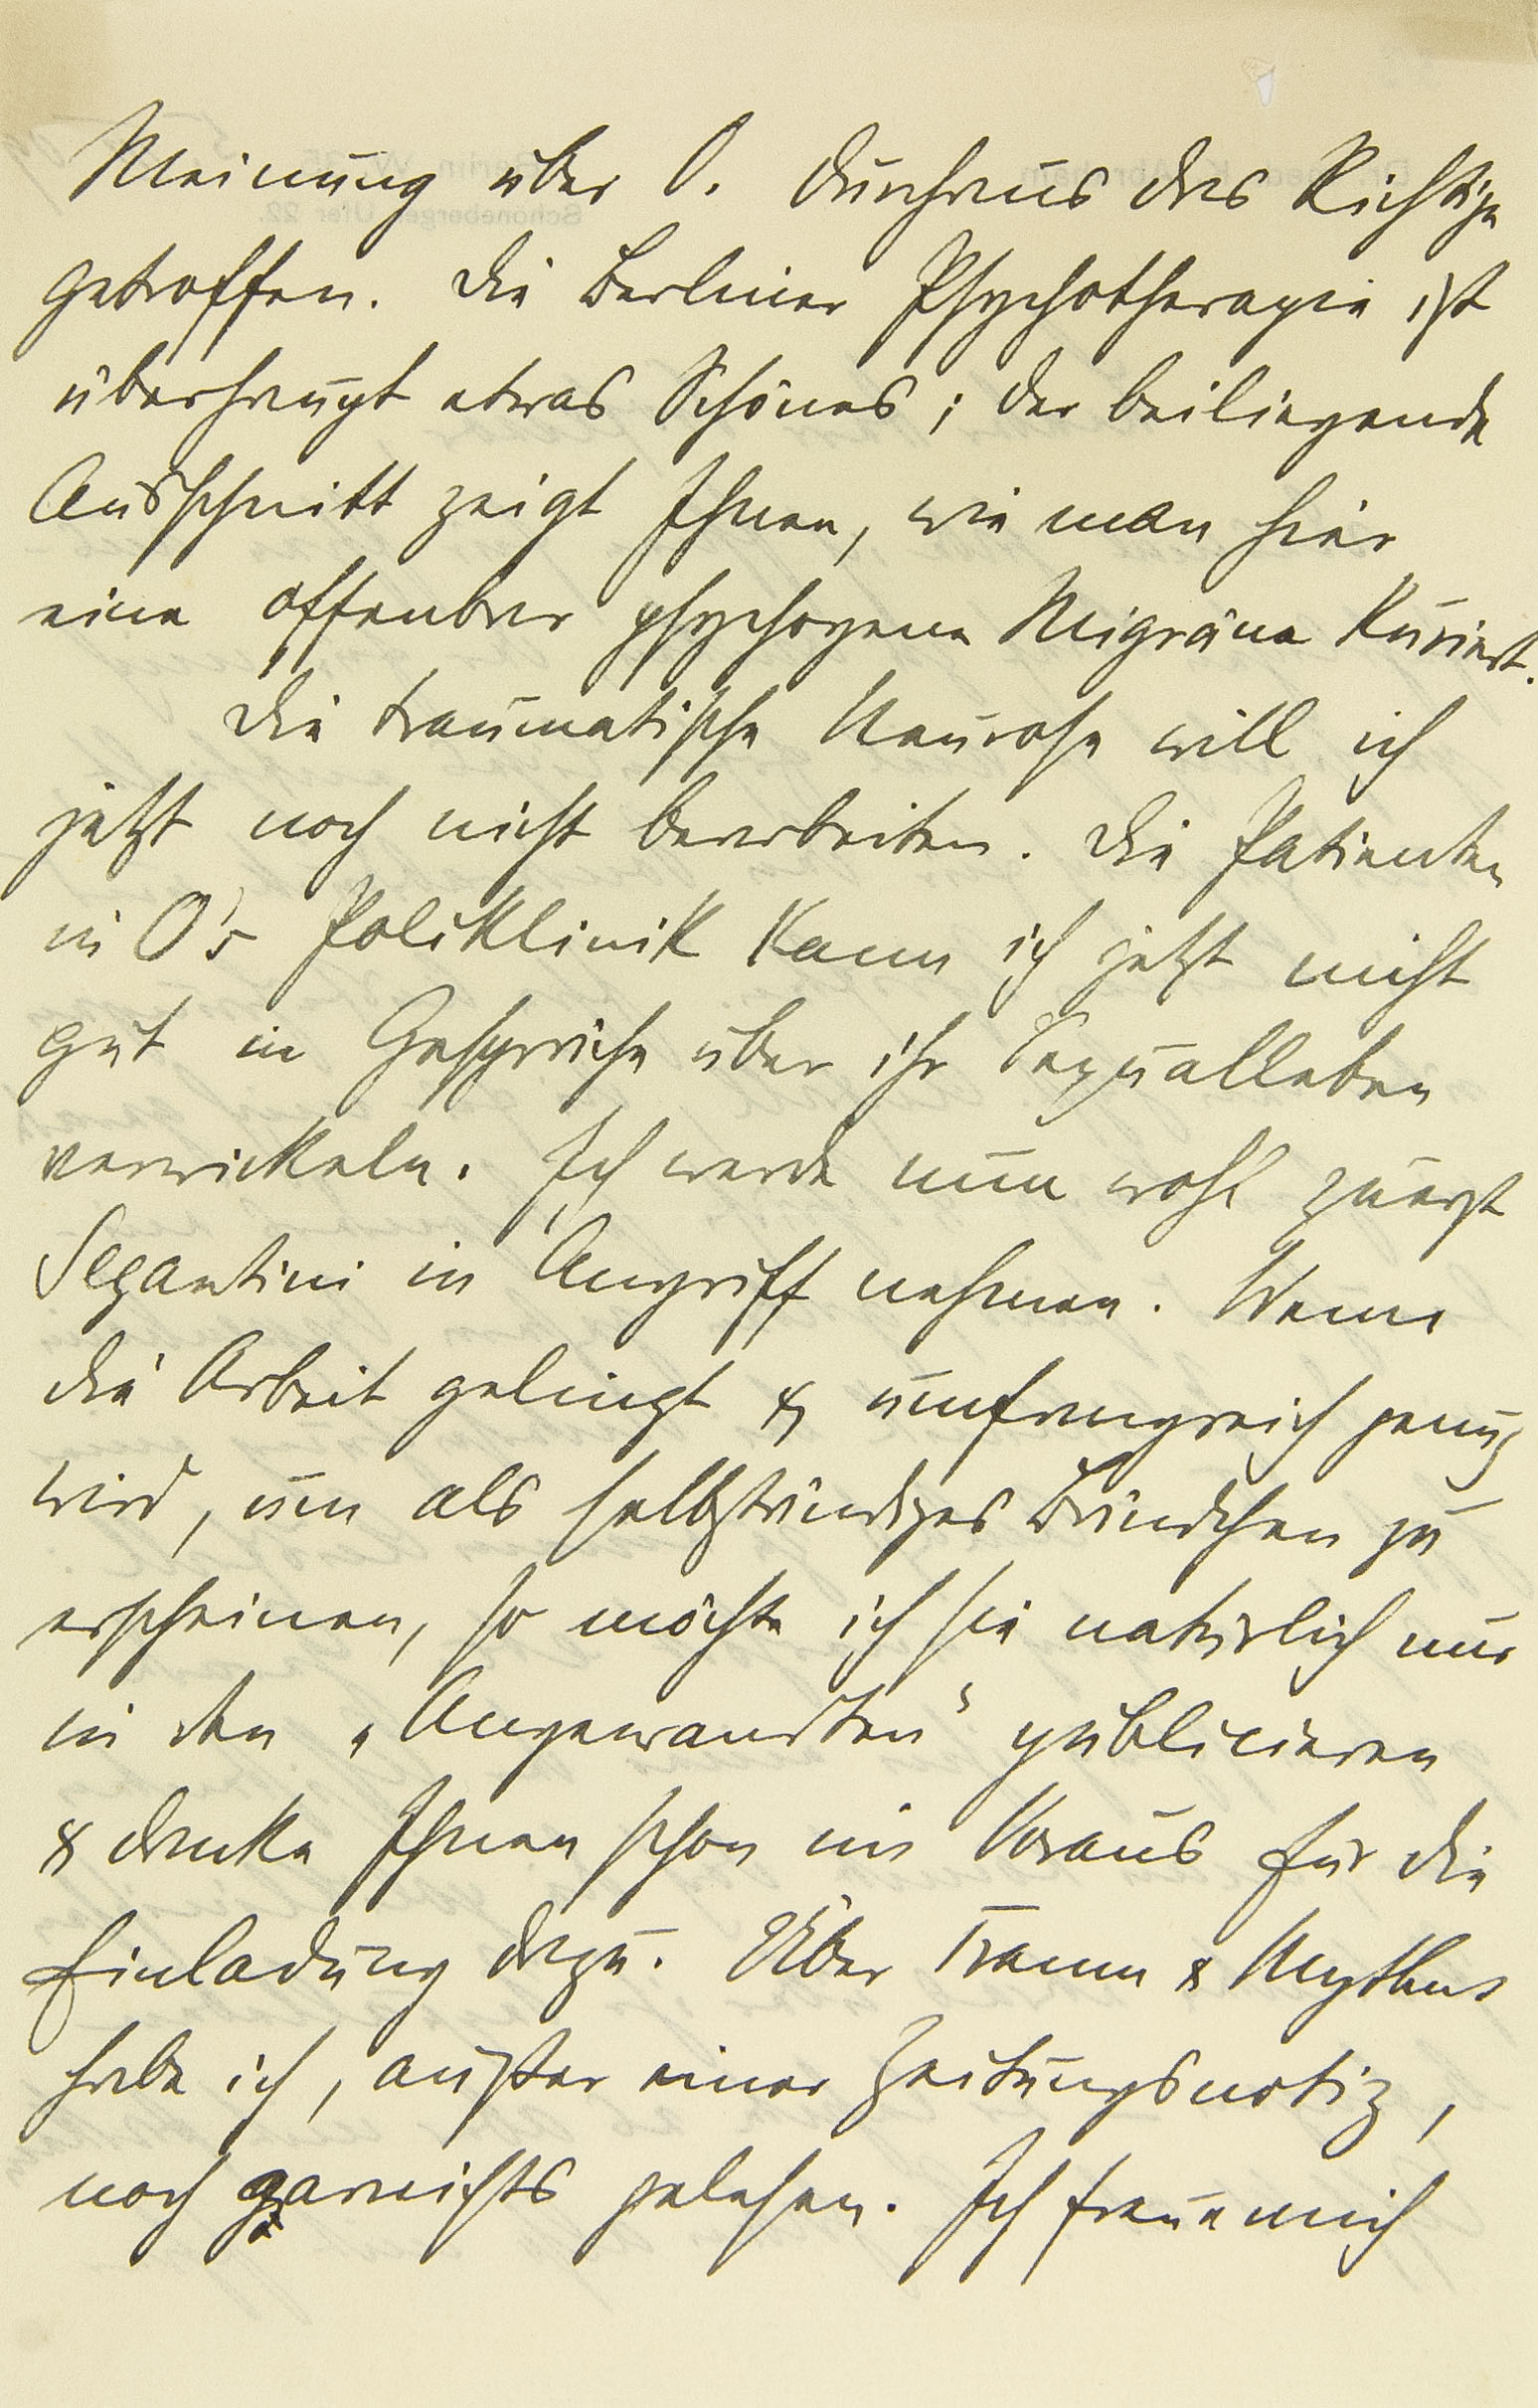 Meinung über O. durchaus das Richtige
getroffen. Die Berliner Psychotherapie ist
überhaupt etwas Schönes; der beiliegende
Ausschnitt zeigt Ihnen, wie man hier
eine offenbar psychogene Migräne kuriert.
Die traumatische Neurose will ich
jetzt noch nicht bearbeiten. Die Patienten
in O's Poliklinik kann ich jetzt nicht
gut in Gespräche über ihr Sexualleben
verwickeln. Ich werde nun wohl zuerst
Segantini in Angriff nehmen. Wenn
die Arbeit gelingt & umfangreich genug
wird, um als selbständiges Bändchen zu
erscheinen, so möchte ich sie natürlich nur
in den „Angewandten“ publicieren
& danke Ihnen schon im Voraus für die
Einladung dazu. Über Traum & Mythus
habe ich, außer einer Zeitungsnotiz,
noch garnichts gelesen. Ich freue mich